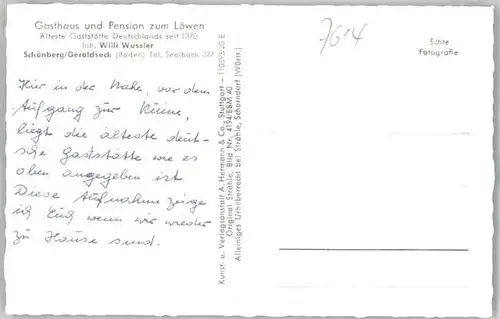 Gasthaus und Pension zum Löwen
Älteste Gaststätte Deutschlands seit 1370
Inh. Willi Wussler
Schönberg/Geroldseck (Baden) Tel. Seelbach 327
Hier in der Nähe, vor dem
Aufgang zur Ruine,
liegt die älteste deut-
sche Gaststätte wie es
oben angegeben ist
Diese Aufnahme zeige
ich Euch wenn wir wieder
zu Hause sind.
Kunst- u. Verlagsanstalt A. Hermann & Co., Stuttgart -
Original Strähle, Bild Nr. 4194/EBM 40
Alleiniges Urheberrecht bei Strähle, Schorndorf (Württ.)
7614
Echte
Fotografie